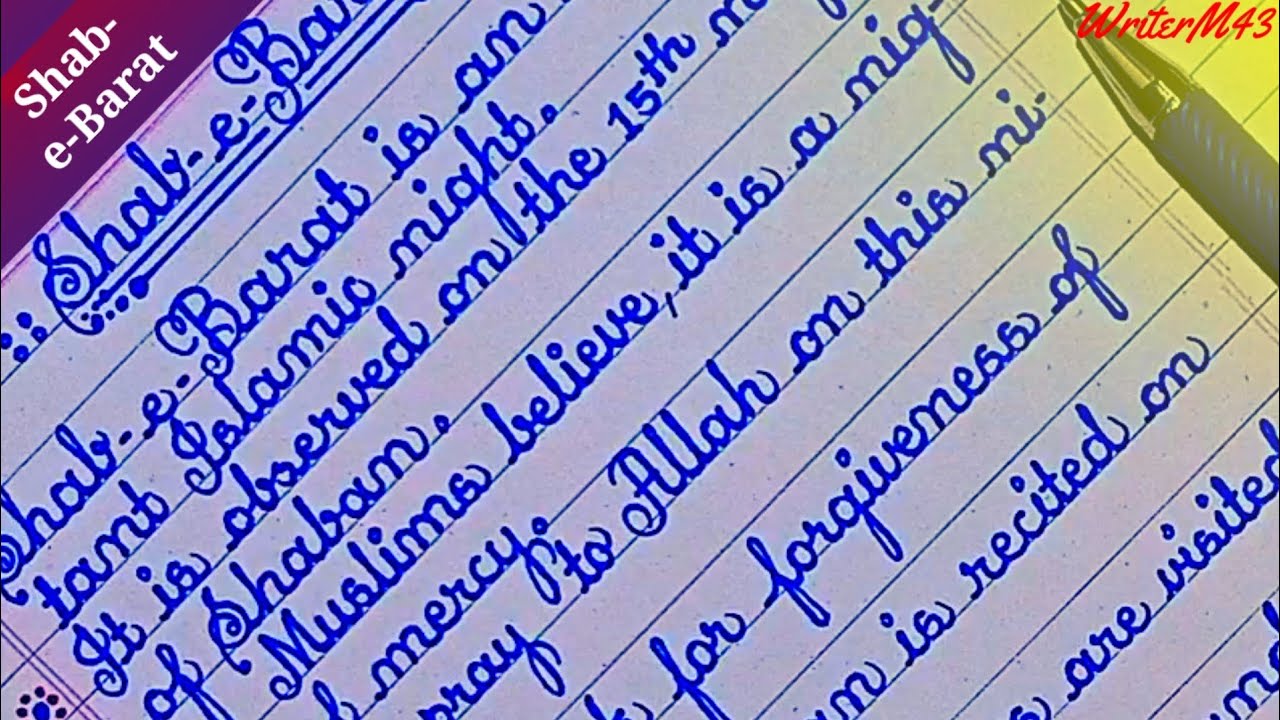 Shab-
e-Barat
WriterM43
Shab-e-Bar
Shab-e-Barat is an
tant Islamic night.
It is observed on the 15th
of Shaban.
Muslims believe, it is a nig-
mercy.
pray to Allah on this ni-
for forgiveness of
is recited on
are visited